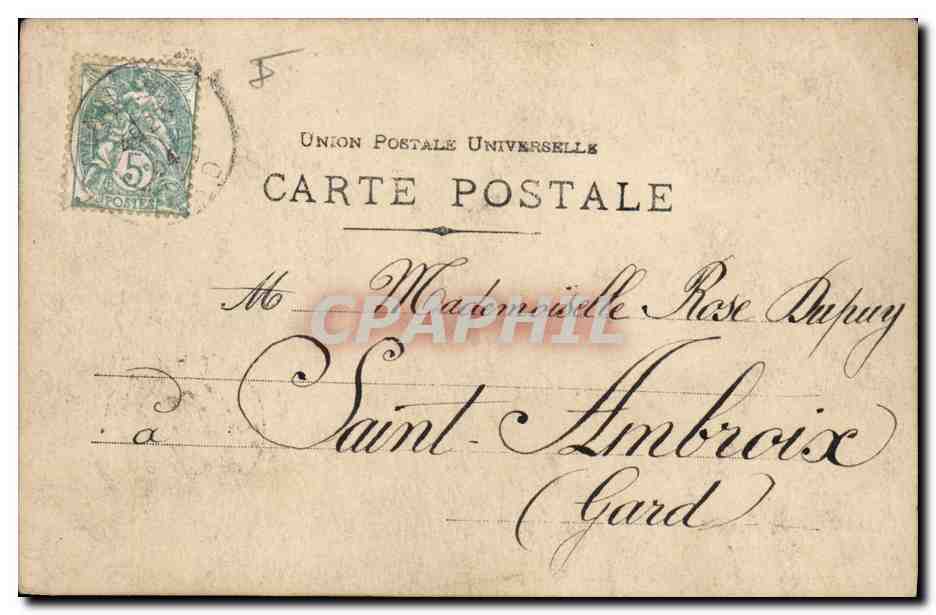 5c
POSTES
UNION POSTALE UNIVERSELLE
CARTE POSTALE
M Mademoiselle Rose Dupuy
CPAPHIL
à Saint-Ambroix
(Gard)